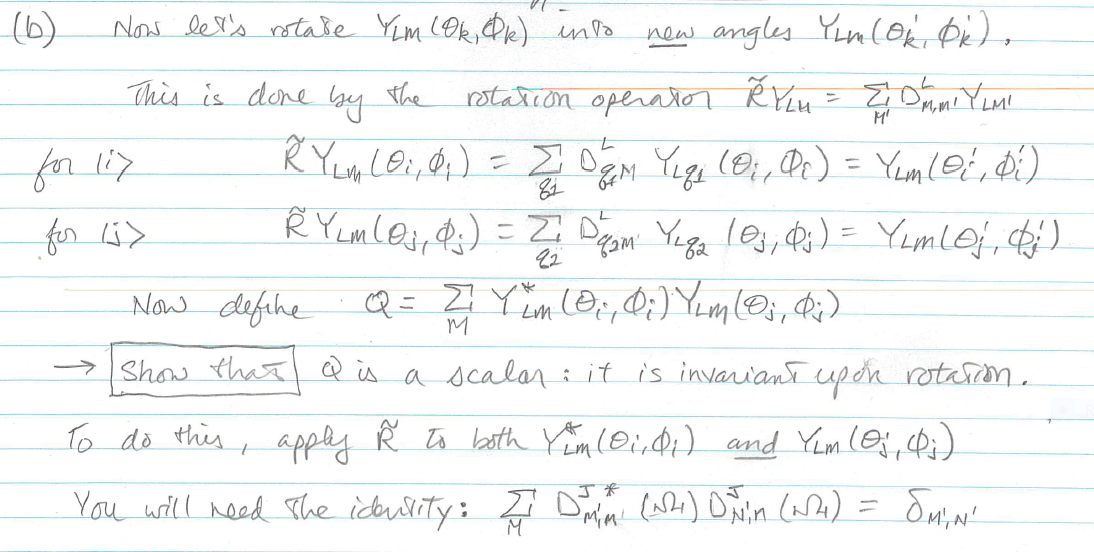 (b) Now let's rotate Y_LM (θ_k, Φ_k) into new angles Y_LM (θ'_k, Φ'_k).
This is done by the rotation operator R̃ Y_LM = Σ_M' D^L_M'M' Y_LM'
for |i> R̃ Y_LM (θ_i, Φ_i) = Σ_q1 D^L_q1M Y_Lq1 (θ_i, Φ_i) = Y_LM (θ_i', Φ_i')
for |j> R̃ Y_LM (θ_j, Φ_j) = Σ_q2 D^L_q2M Y_Lq2 (θ_j, Φ_j) = Y_LM (θ_j', Φ_j')
Now define Q = Σ_M Y*_LM (θ_i, Φ_i) Y_LM (θ_j, Φ_j)
→ Show that Q is a scalar : it is invariant upon rotation.
To do this, apply R̃ to both Y*_LM (θ_i, Φ_i) and Y_LM (θ_j, Φ_j)
You will need the identity: Σ_M D^J*_M'M (Ω) D^J_N'M (Ω) = δ_M',N'